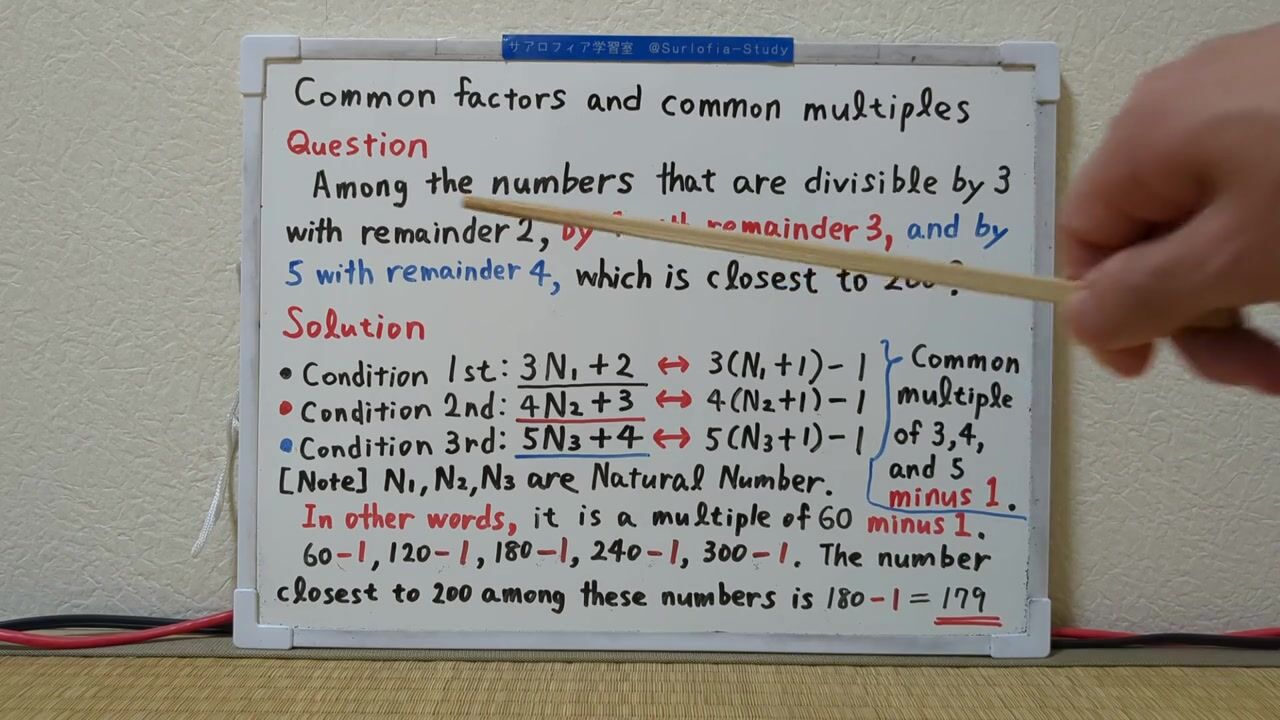 サアロフィア学習室 @Surlofia-Study
Common factors and common multiples
Question
Among the numbers that are divisible by 3
with remainder 2, by remainder 3, and by
5 with remainder 4, which is closest to
Solution
• Condition 1st: 3N₁+2 ↔ 3(N₁+1)-1
• Condition 2nd: 4N₂+3 ↔ 4(N₂+1)-1
• Condition 3rd: 5N₃+4 ↔ 5(N₃+1)-1
Common
multiple
of 3,4,
and 5
minus 1.
[Note] N₁,N₂,N₃ are Natural Number.
In other words, it is a multiple of 60 minus 1.
60-1, 120-1, 180-1, 240-1, 300-1. The number
closest to 200 among these numbers is 180-1=179